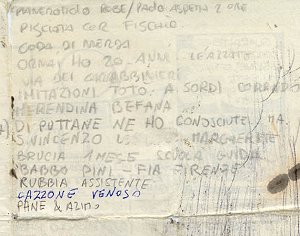 PIANEROTTOLO ROBE/PAOLO ASPETTA 2 ORE
PISCIATA COR FISCHIO
CODA DI MERDA
ORMAI HO 20 ANNI LEAZZATE
VIA DEI CARABBINIERI
IMITAZIONI TOTO. A SORDI CORRADO
MERENDINA BEFANA
DI PUTTANE NE HO CONOSCIUTE MA
S.VINCENZO MARGHERITE
BRUCIA 1 MESE SCUOLA GUIDA
BABBO PINI - FIA FIRENZE
RUBBIA ASSISTENTE
CAZZONE VENOSO
PANE & AZIMO